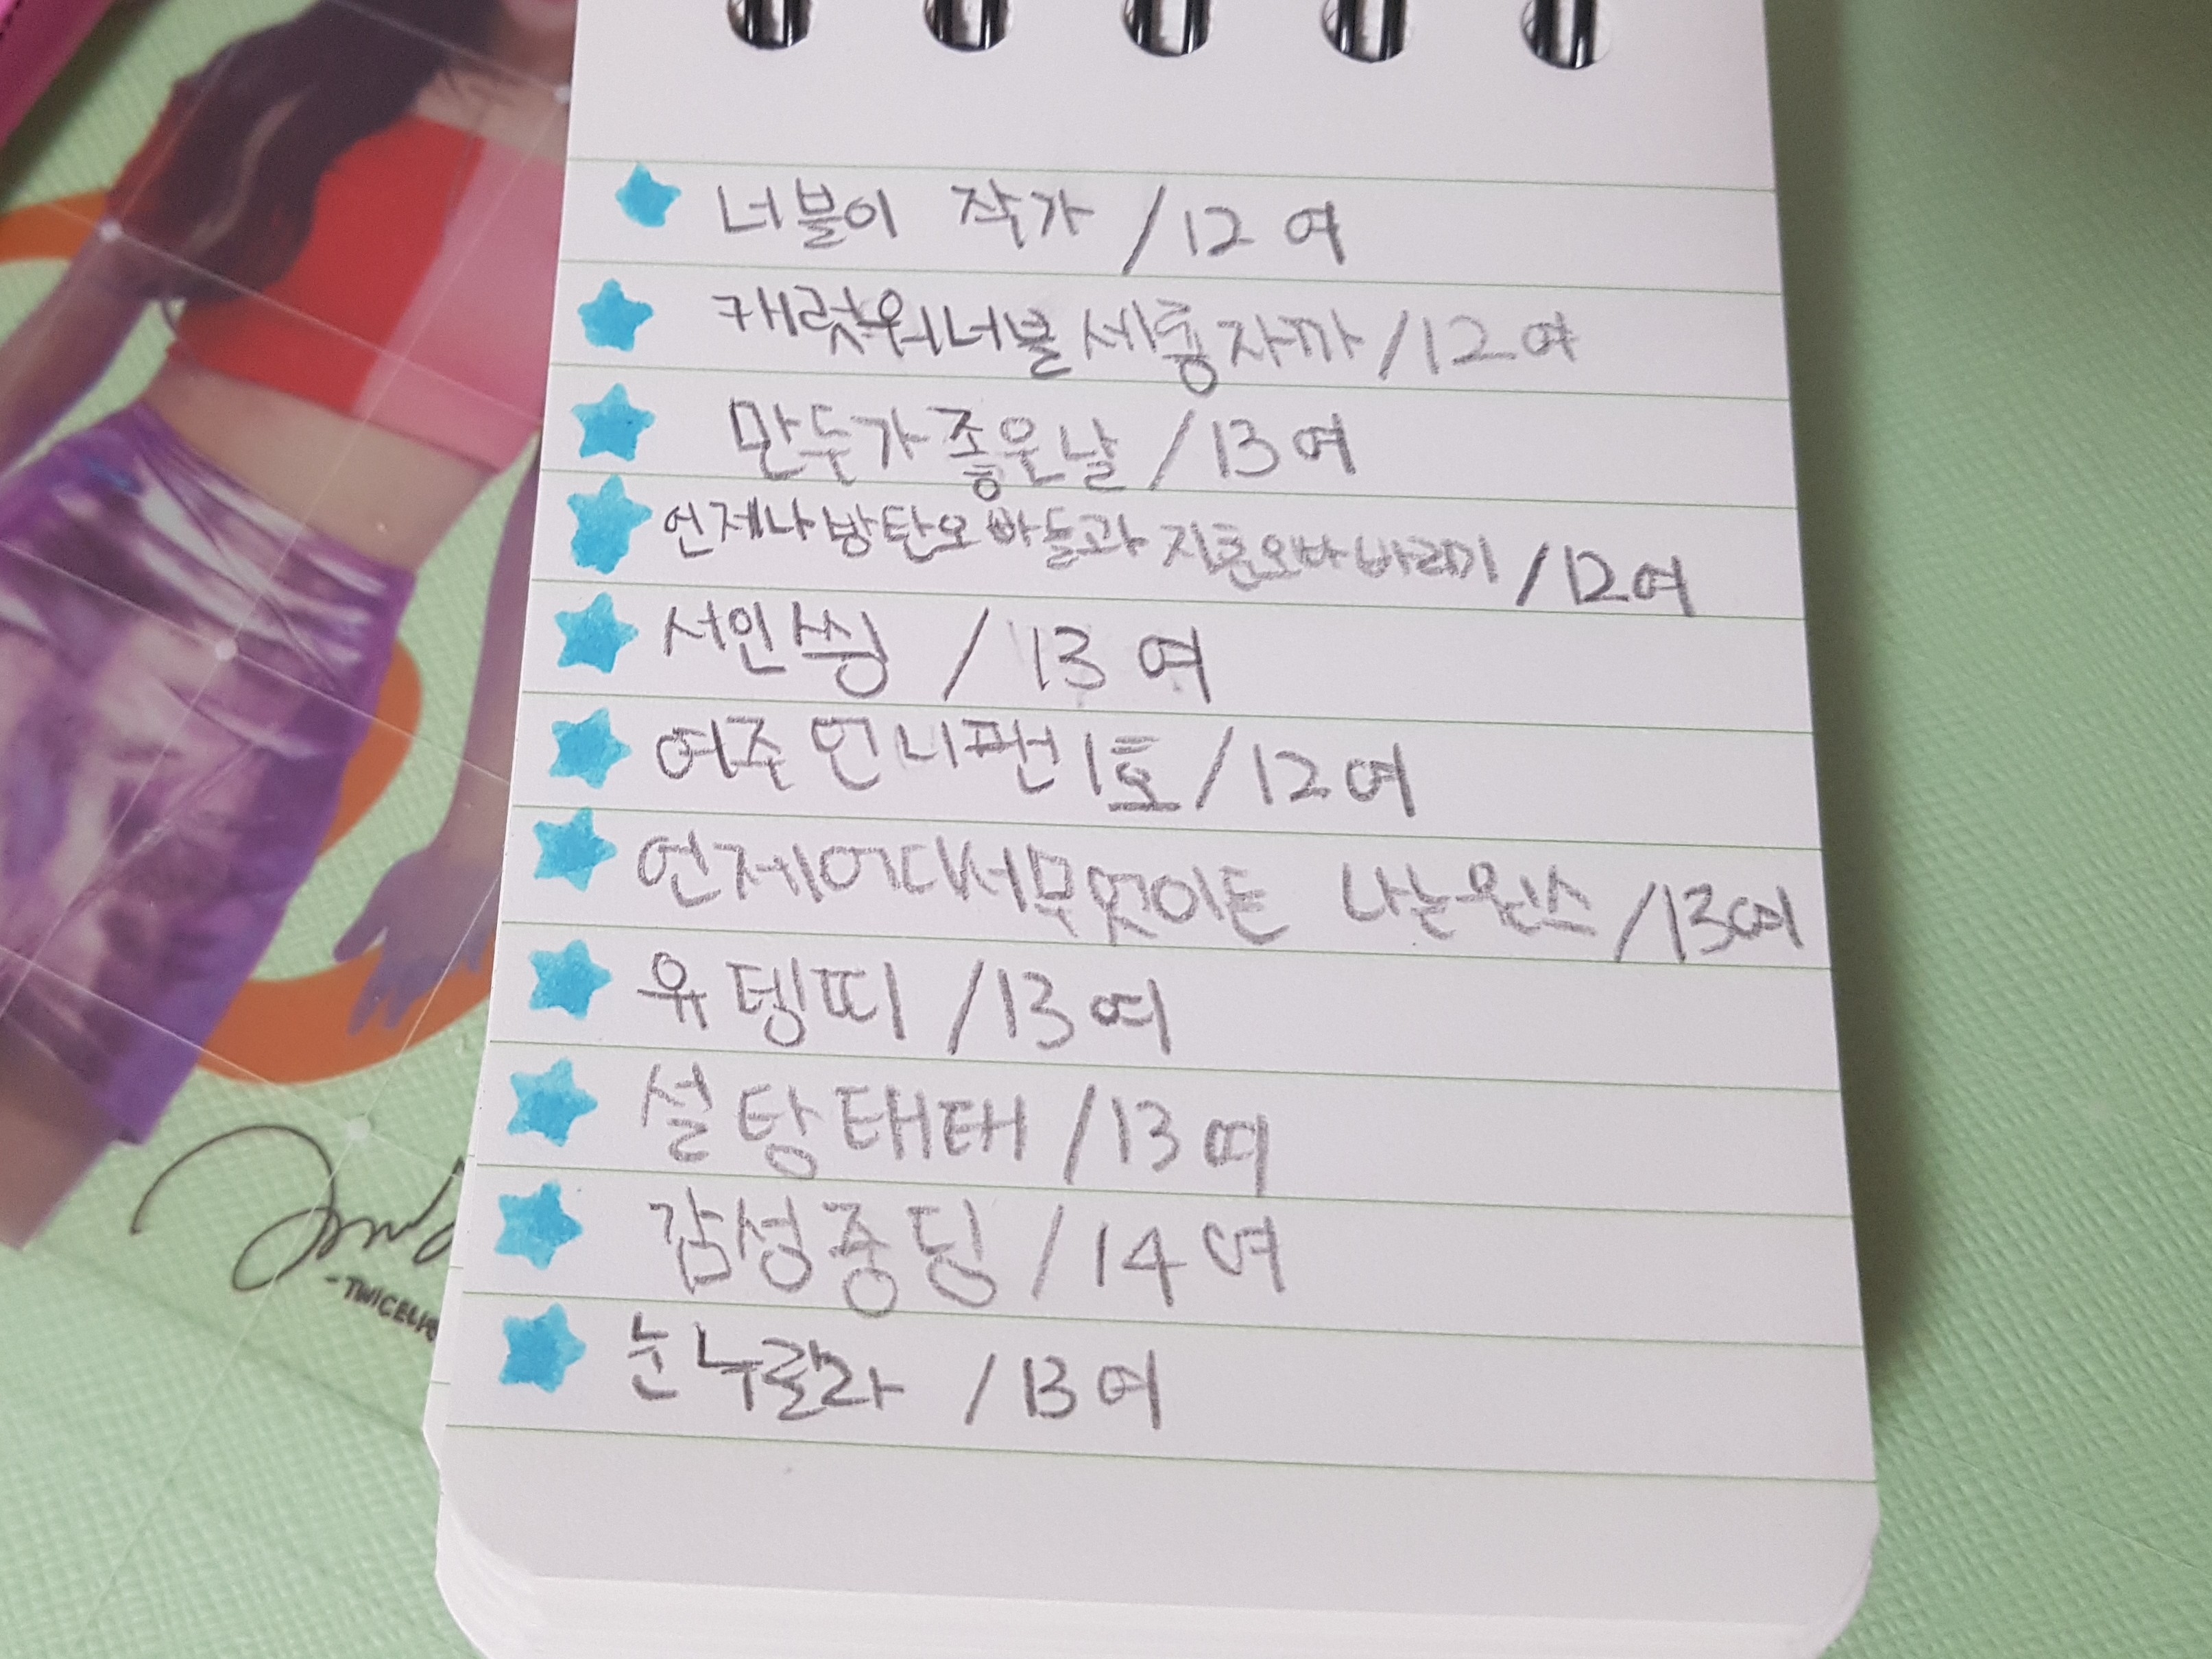 너블이 작가 /12 여
캐럿워너블세륭자까/12여
만두가좋은날/13여
언제나방탄오빠들과지훈오빠바라기/12여
서인씽 /13 여
여주언니팬1호/12여
언제어디서무엇이든 나는원스/13여
유뎅띠 /13여
설탕태태/13여
감성중딩/14여
눈누랄라 /13여
-TWICE